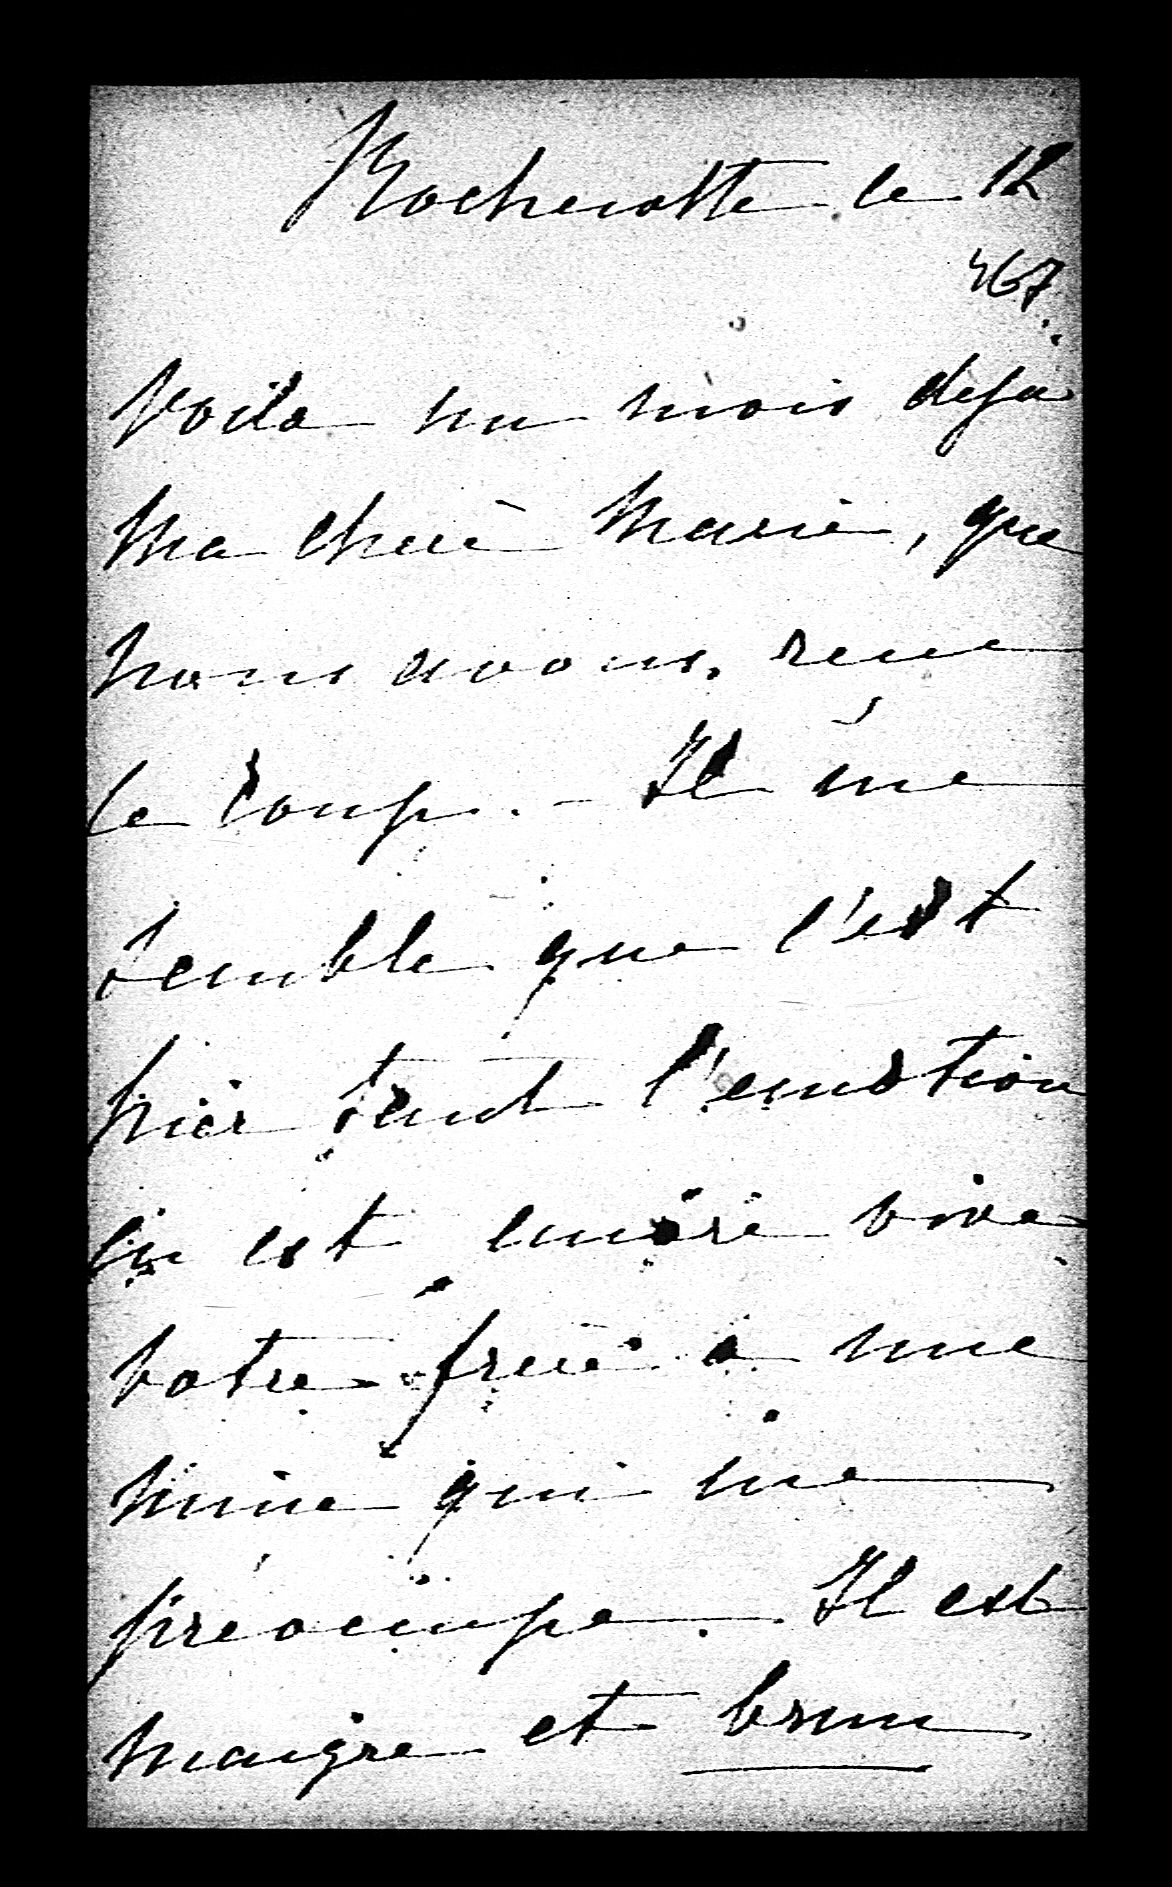 Rochecotte le 12
467.
Voila un mois deja
Ma chere Marie, que
nous avons recu
le coup. - Il me
semble que c'est
hier tant l'emotion
en est encore vive
votre frere a une
mine qui me
préoccupe. Il est
maigre et brun